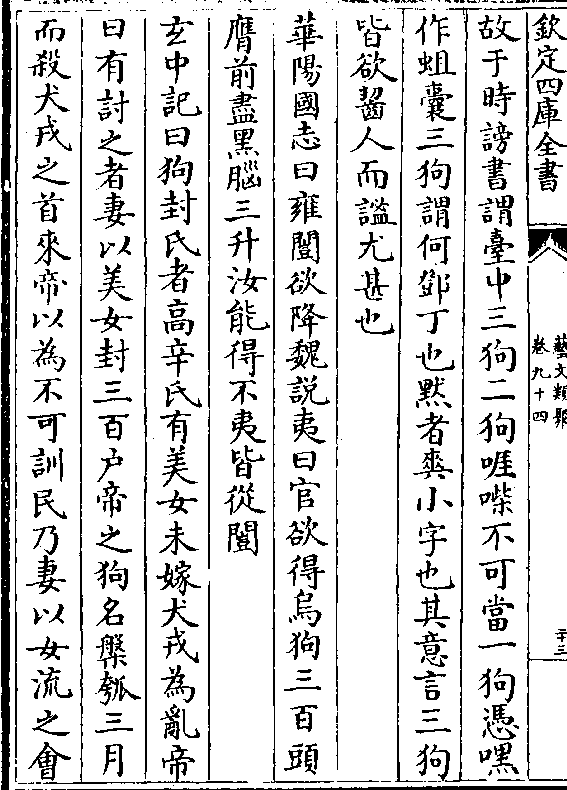 欽定四庫全書
藝文類聚
卷九十四
故于時謗書謂臺中三狗二狗啀喍不可當一狗憑嘿
作蛆囊三狗謂何鄧丁也黙者爽小字也其意言三狗
皆欲齧人而謐尤甚也
華陽國志曰雍闓欲降魏説夷曰官欲得烏狗三百頭
膺前盡黑腦三升汝能得不夷皆從闓
玄中記曰狗封氏者高辛氏有美女未嫁犬戎為亂帝
曰有討之者妻以美女封三百户帝之狗名槃瓠三月
而殺犬戎之首來帝以為不可訓民乃妻以女流之會